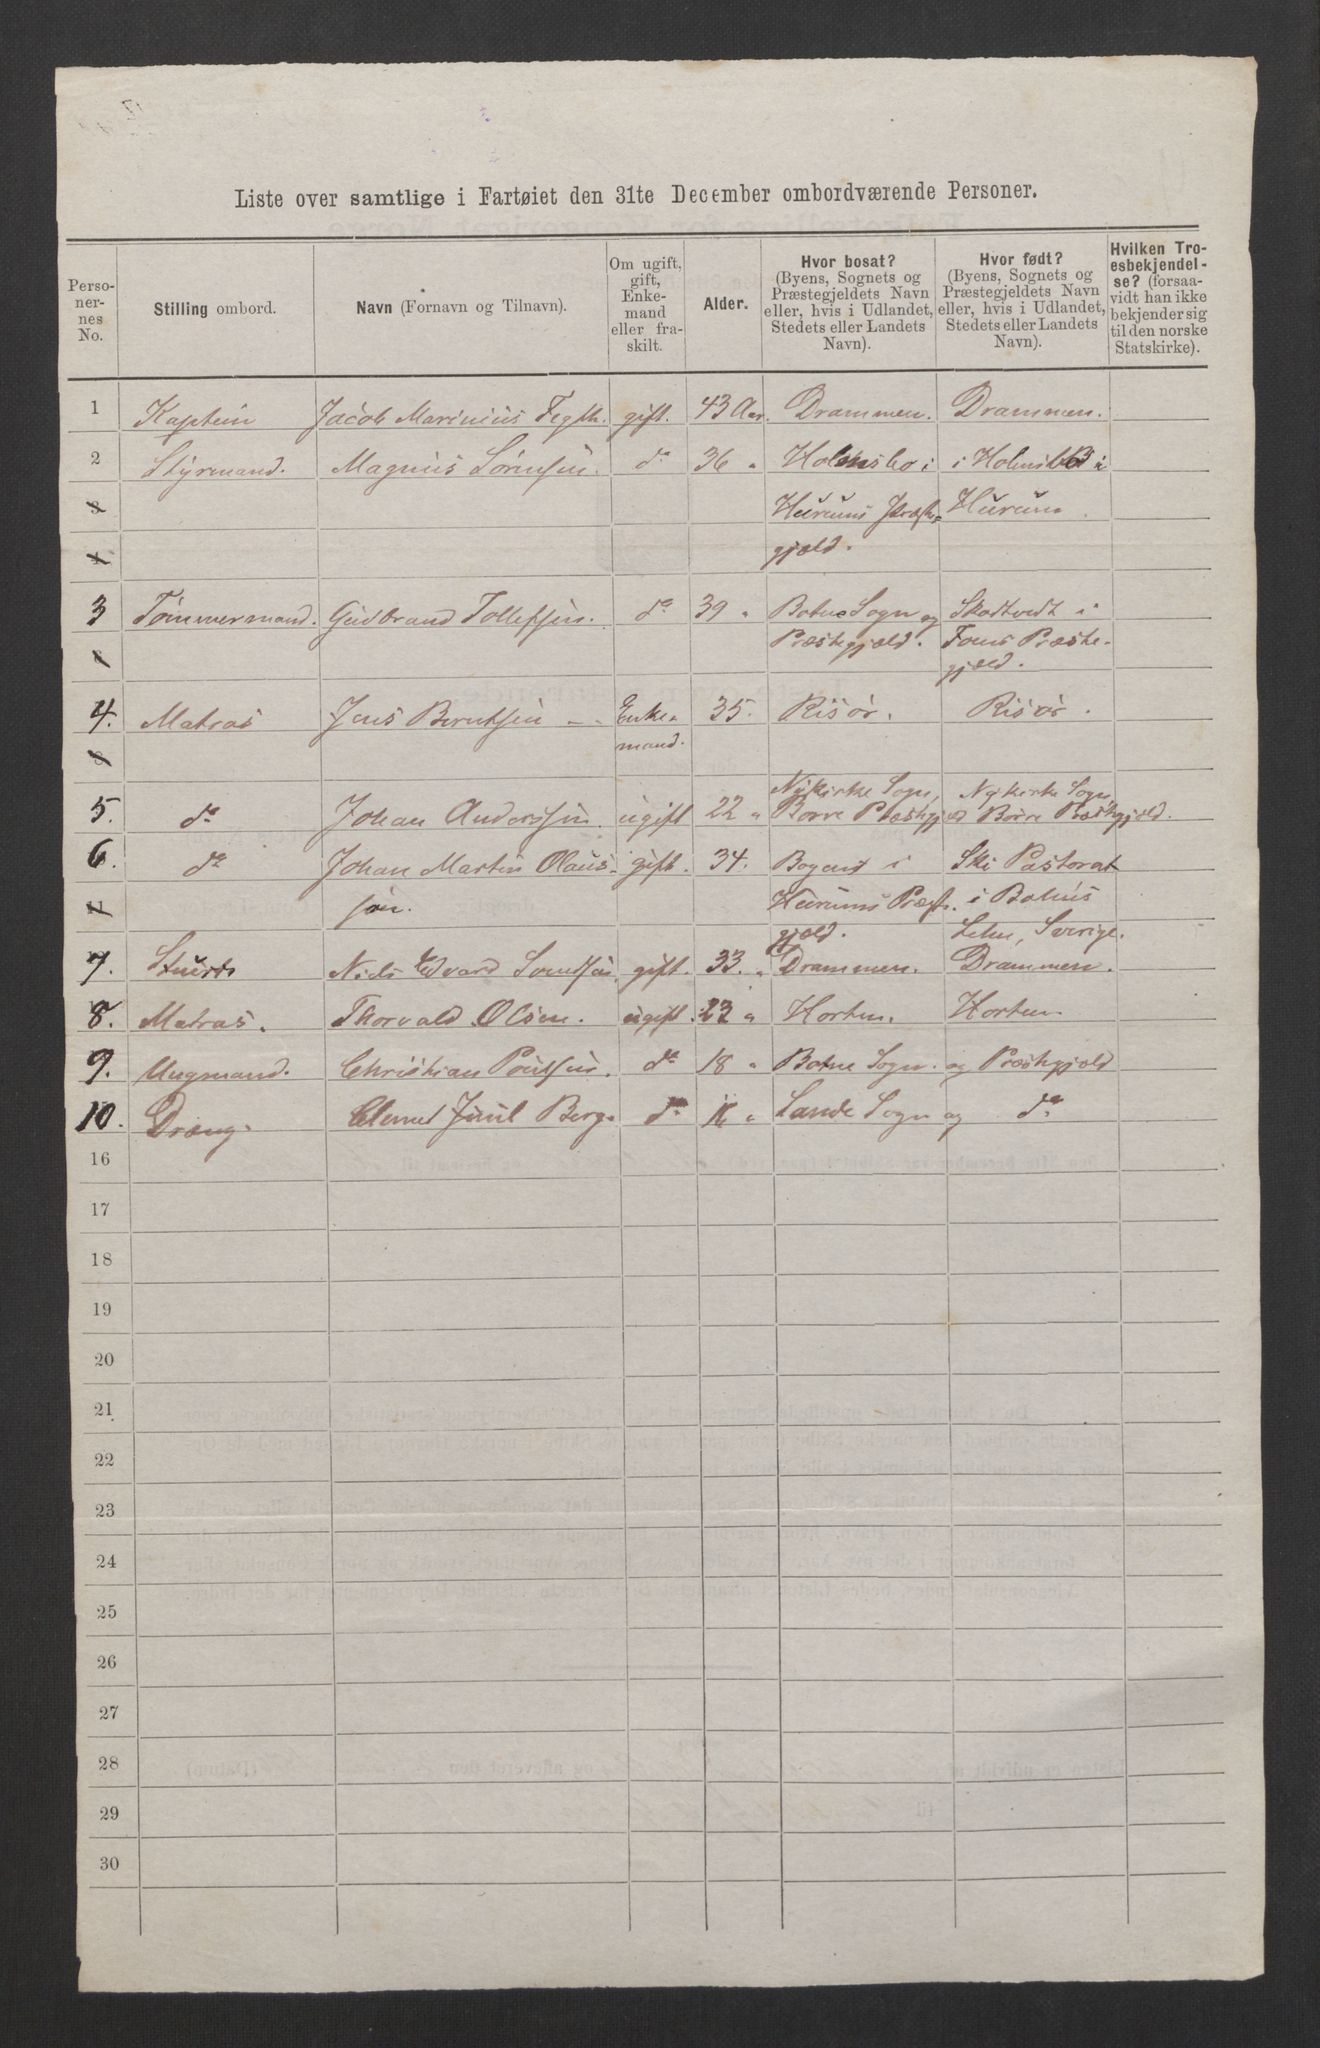 Liste over samtlige i Fartøiet den 31te December ombordværende Personer.
Perso-
ner-
nes
No.
Stilling ombord.
Navn (Fornavn og Tilnavn).
Om ugift,
gift,
Enke-
mand
eller fra-
skilt.
Alder.
Hvor bosat?
(Byens, Sognets og
Præstegjeldets Navn
eller, hvis i Udlandet,
Stedets eller Landets
Navn).
Hvor født?
(Byens, Sognets og
Præstegjeldets Navn
eller, hvis i Udlandet,
Stedets eller Landets
Navn).
Hvilken Tro-
esbekjendel-
se? (forsaa-
vidt han ikke
bekjender sig
til den norske
Statskirke).
1 Kaptein Jacob Marinius gift. 43 Aar. Drammen. Drammen.
2 Styrmand. Magnus Sörensen. do 36 " Holmsbo i i Holmsbo i
Hurums Præste- Hurum.
gjæld.
3 Tömmermand. Gudbrand Tollefsen. do 39 " Botne Sogn og Skadtvedt i
Præstegjæld. Præste-
gjæld.
4. Matros Jens Berntsen Enke- 35. Risör. Risör.
mand.
5. do Johan Anderssen. ugift 22 " Nykirke Sogn, Nykirke Sogn
Borre Præstegjæld Borre Præstegjæld.
6. do Johan Martin Olaus- gift. 34. i Ski Pastorat
sen. Hurums Præste- i Bohus
gjæld. Lehn, Sverige.
7. Stuert Niels Edvard Svendsen gift. 33. " Drammen. Drammen.
8. Matros. Thorvald Olsen. ugift. 23 " Horten. Horten.
9. Ungmand. Christian do 18 " Botne Sogn. og Præstegjæld
10. Dræng. Juul Berg. do 16 " Sande Sogn og do
16
17
18
19
20
21
22
23
24
25
26
27
28
29
30